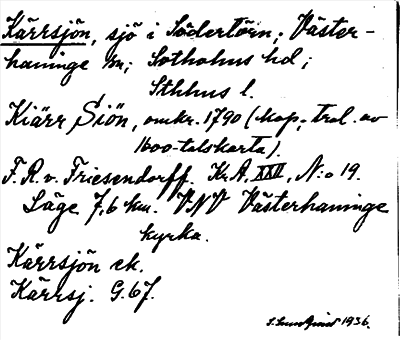 Kärrsjön, sjö i Södertörn; Väster-
haninge sn; Sotholms hd;
Sthlms l.
Kiärr Siön, omkr. 1790 (kop; trol. av
1600-talskarta).
F. R. v. Friesendorff. Kr.A. XXII, N:o 19.
Läge 7,6 km. VNV Västerhaninge
kyrka.
Kärrsjön ek.
Kärrsj. G. 67.
S. Lundqvist 1936.